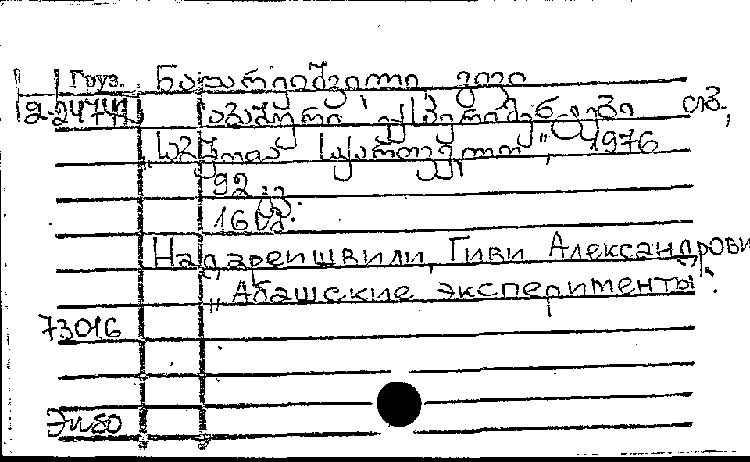 Груз. ნადარეიშვილი, გივი
2-24741 აბაშური ექსპერიმენტები თბ.,
„საბჭოთა საქართველო", 1976
92 გვ.
16 კპ.
Надареишвили, Гиви Александрович
„Абашские эксперименты".
73016